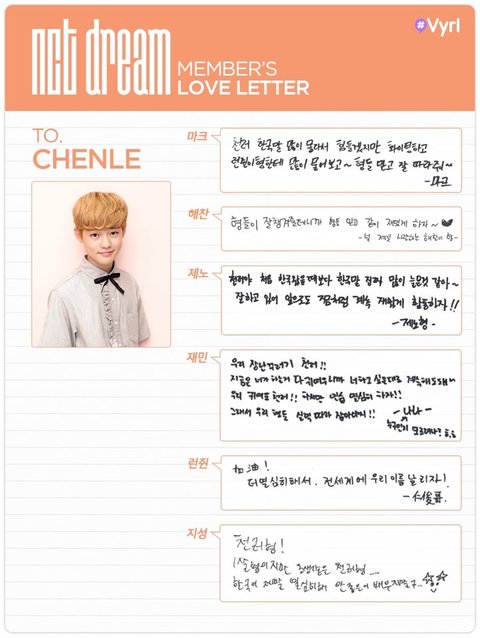 nct dream MEMBER'S
LOVE LETTER
#Vyrl
TO.
CHENLE
마크
천러 한국말 많이 몰라서 힘들겠지만 화이팅하고
런쥔이형한테 많이 물어보고~ 형들 믿고 잘 따라줘~
-마크
해찬
형들이 잘챙겨줄테니까 형들 믿고 같이 재밌게 하자~ ♥
-널 제일 사랑하는 해찬이 형-
제노
천러야 처음 한국왔을때보다 한국말 진짜 많이 는것 같아~
잘하고 있어 앞으로도 지금처럼 계속 재밌게 활동하자!!
-제노형-
재민
우리 장난꾸러기 천러!!
지금은 너가 하는게 다 귀여우니까 너 하고싶은대로 계속해도돼~
우리 귀여운 천러!! 하지만 연습 열심히 하자!!
그래서 우리 형들 실력 따라 잡아야지!!
-나나-
누구인지 모르려나?
런쥔
加油!
더 열심히해서. 전세계에 우리 이름 날리자!
지성
천러형!
1살 형이지만 동생같은 천러형....
한국어 제발 열심히해 안좋은거 배우지말구..